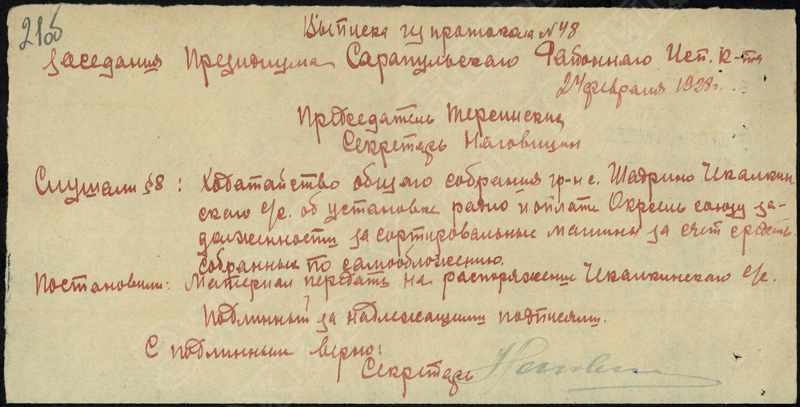 21об
Выписка из протокола № 48
заседания Президиума Сарапульского Районнаго Исп. К-та
24 февраля 1928 г.
Председатель Терсинских
Секретарь Наговицин
Слушали § 8: Ходатайство общаго собрания гр-н с. Шадрино Икалкин
скаго с/с. об установке радио и оплате Окрсель союзу за-
долженности за сортировальные машины за счет средств
собранных по самообложению.
Постановили: Материал передать на распоряжение Икалкинскаго с/с.
Подлинный за надлежащими подписями.
С подлинным верно:
Секретарь